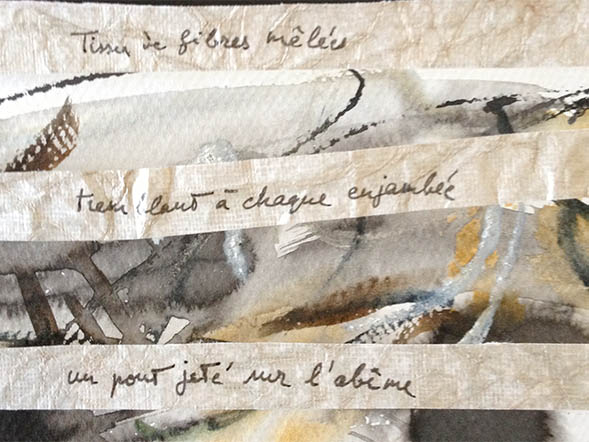 Tissu de fibres mêlées
tremblant à chaque enjambée
un pont jeté sur l'abîme